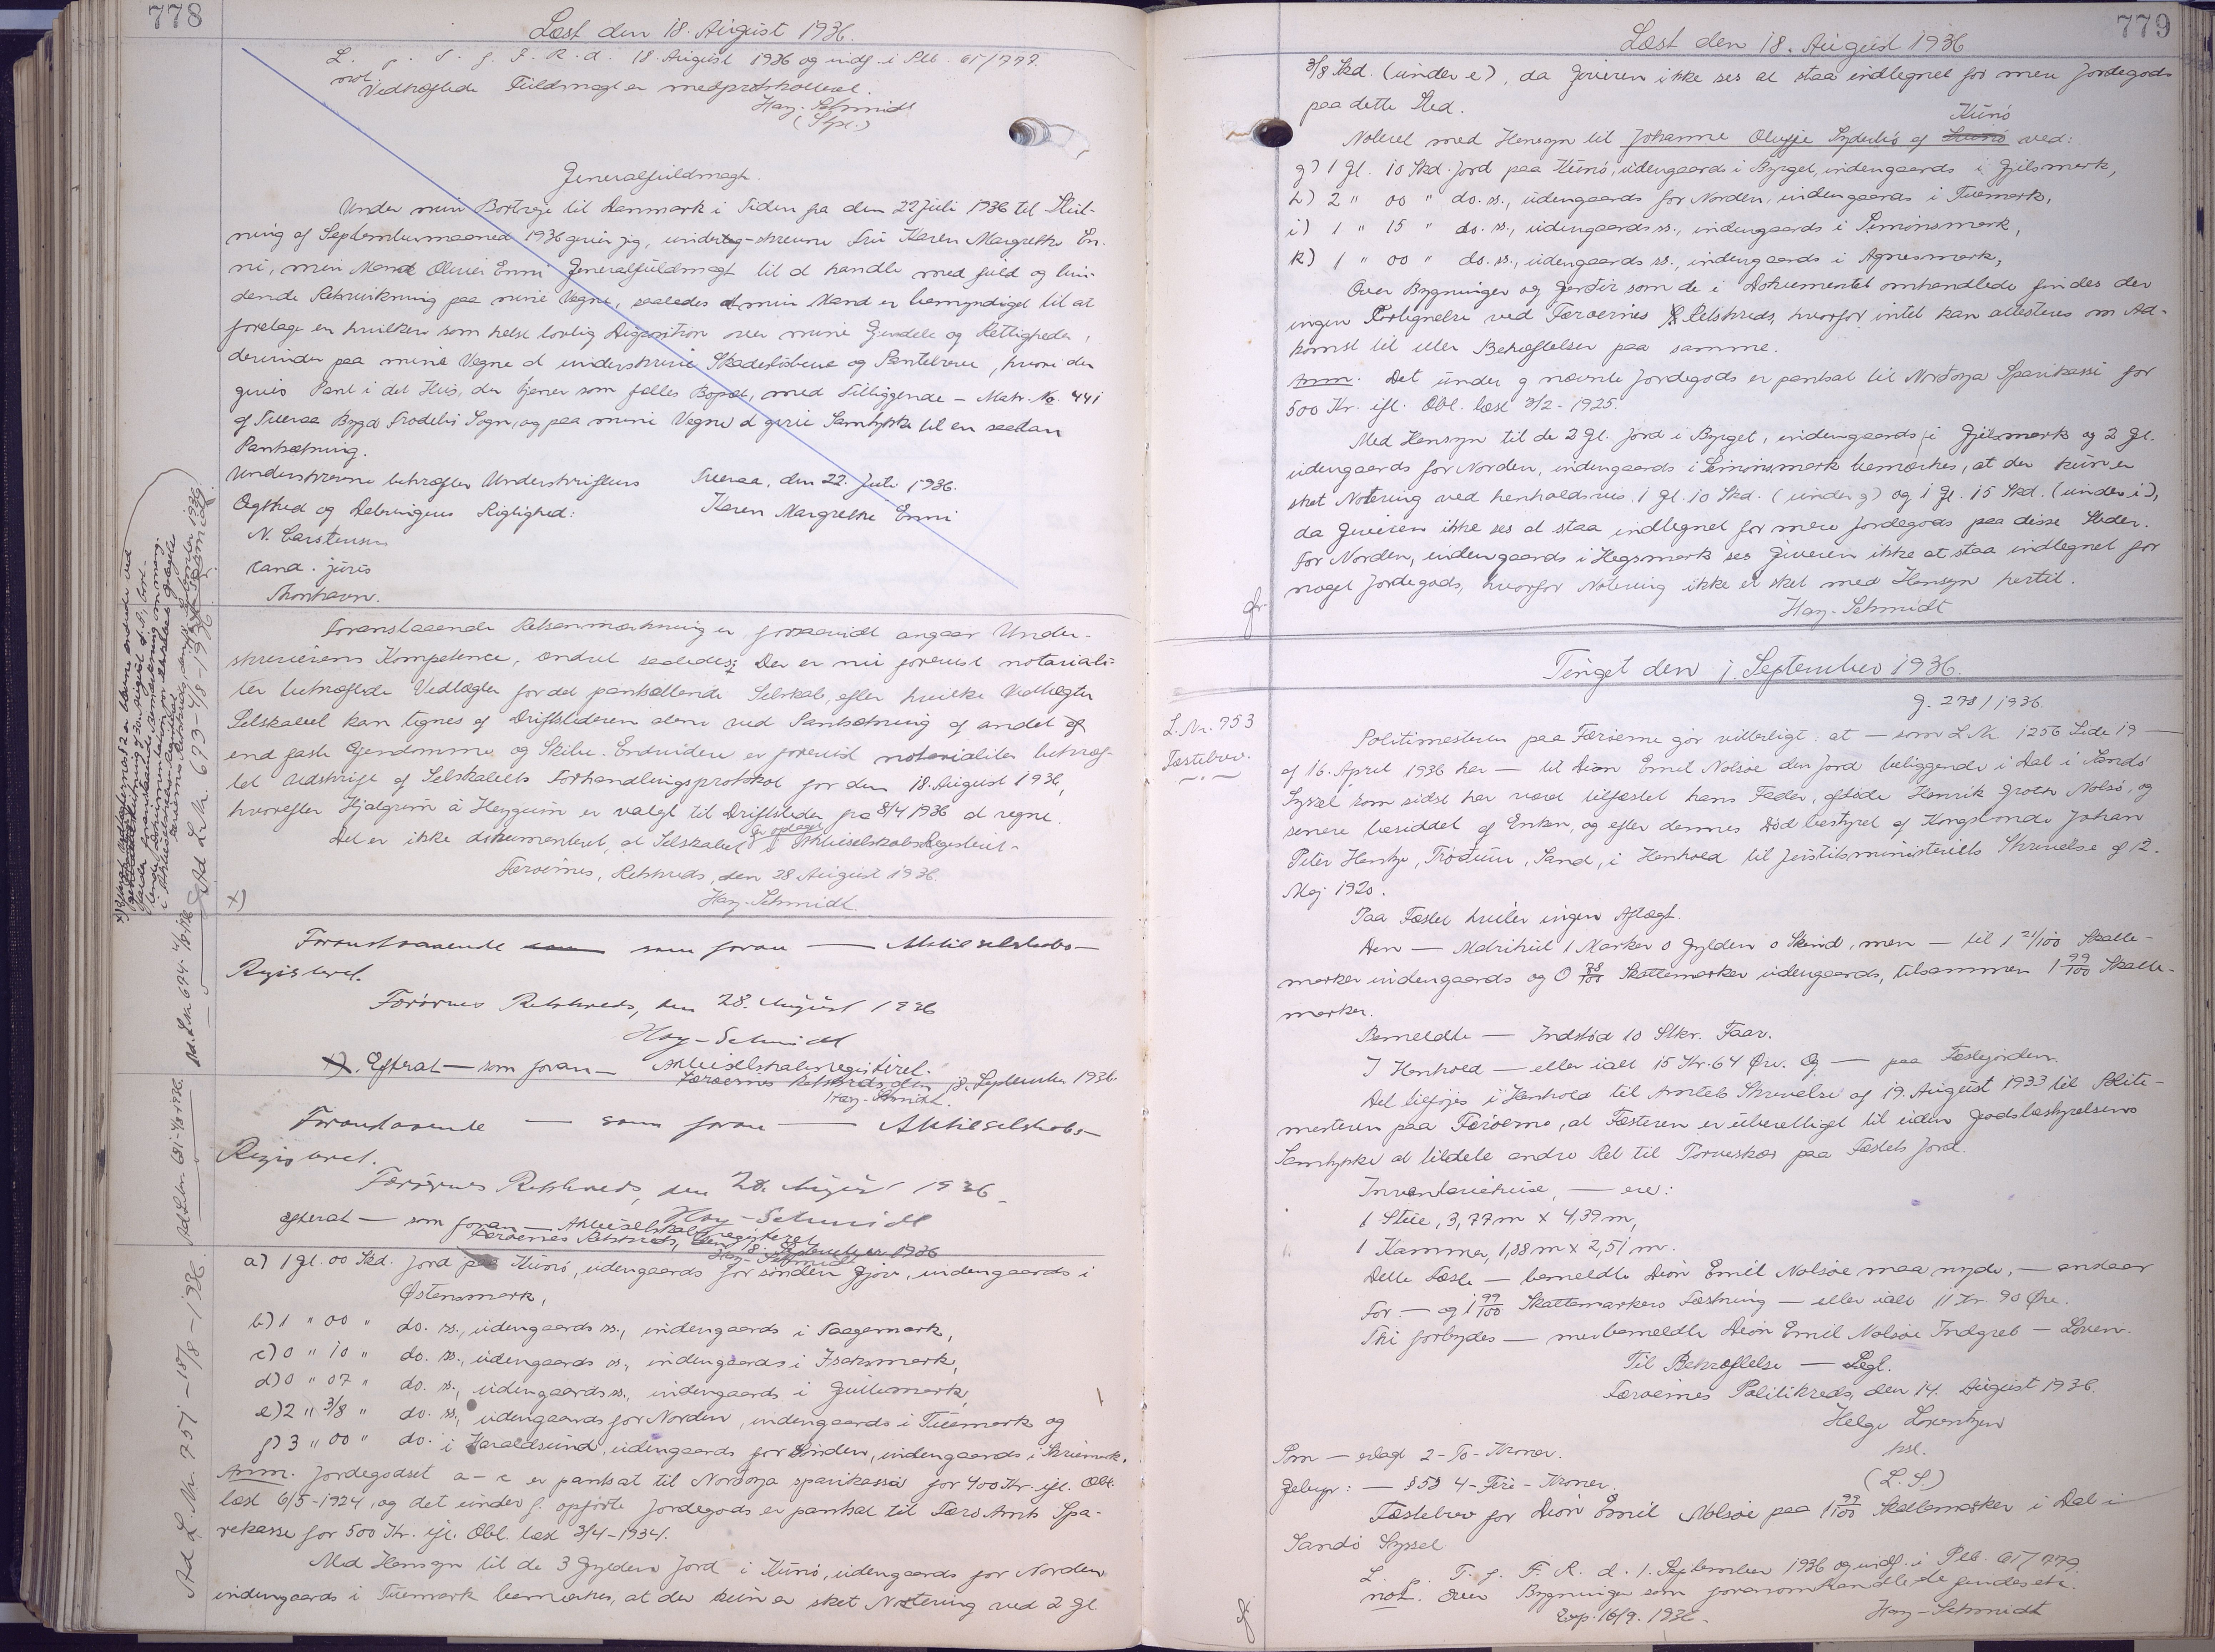 778
Læst den 18. August 1936.
L. p. T. f. F. R. d. 18 August 1936 og indf. i Plb. 61/778.
not.
Vedhæftede Fuldmagt er medprotokolleret.
Hay-Schmidt
(Spl.)
Generalfuldmagt.
Under min Bortrejse til Danmark i Tiden fra den 22 Juli 1936 til Slut-
ning af Septembermaaned 1936 giver jeg, undertegnede-skrevne Fru Karen Margrethe En-
ni, min Mand Oliver Enni Generalfuldmagt til at handle med fuld og bin-
dende Retsvirkning paa mine Vegne, saaledes at min Mand er bemyndiget til at
foretage en hvilken som helst lovlig Disposition over mine Ejendele og Rettigheder,
derunder paa mine Vegne at underskrive Skadesløsbreve og Pantebreve, hvori der
gives Pant i det Hus, der tjener som fælles Bopæl, med Tilliggende - Matr. No. 441
af Tveraa Bygd Frodebø Sogn, og paa mine Vegne at give Samtykke til en saadan
Pantsætning.
Underskrevne bekræfter Underskriftens Tveraa, den 22. Juli 1936.
Ægthed og Dateringens Rigtighed: Karen Margrethe Enni
N. Carstensen
cand. juris
Thorshavn.
Foranstaaende Retsanmærkning er forsaavidt angaar Under-
skriverens Kompetence, ændret saaledes: Der er nu forevist notariali-
ter bekræftede Vedtægter for det pantsættende Selskab, efter hvilke Vedtægter
Selskabet kan tegnes af Driftslederen alene ved Pantsætning af andet af
end faste Ejendomme og Skibe. Endvidere er forevist notarialiter bekræf-
tet Udskrift af Selskabets Forhandlingsprotokol for den 18. August 1936,
hvorefter Hjalgrim á Heygum er valgt til Driftsleder fra 8/4 1936 at regne.
Det er ikke dokumenteret, at Selskabet er optaget i Aktieselskabs-Registeret.
Færøernes Retskreds, den 28 August 1936.
x) Hay-Schmidt.
Foranstaaende som foran — Aktieselskabs-
Registeret.
Færøernes Retskreds, den 28. August 1936
Hay-Schmidt
x). Efterat — som foran — Aktieselskabsregisteret.
Færøernes Retskreds, den 18. September 1936.
Hay-Schmidt.
Foranstaaende — som foran — Aktieselskabs-
Registeret.
Færøernes Retskreds, den 28. August 1936.
Hay-Schmidt
Efterat — som foran — Aktieselskabsregisteret
Færøernes Retskreds, den 18. September 1936
Hay-Schmidt
a) 1 Gl. 00 Skd. Jord paa Kunø, udengaards for sønden Gjøv, indengaards i
Østensmørk,
b) 1 " 00 " do. ss., udengaards ss., indengaards i Taagemørk,
c) 0 " 10 " do. ss., udengaards ss., indengaards i Isaksmørk,
d) 0 " 07 " do. ss., udengaards ss., indengaards i Guttemørk,
e) 2 " 3/8 " do. ss., udengaards for Norden, indengaards i Tuemørk og
f) 3 " 00 " do. i Haraldsund, udengaards for Sønden, indengaards i Skriemørk.
Anm. Jordegodset a-c er pantsat til Nordoya sparikassa for 400 Kr. ifl. Obl.
læst 6/5-1924, og det under f. opførte Jordegods er pantsat til Færø Amts Spa-
rekasse for 500 Kr. ifl. Obl. læst 3/4-1934.
Med Hensyn til de 3 Gylden Jord i Kunø, udengaards for Norden
indengaards i Tuemørk bemærkes, at der kun er sket Notering ved 2 Gl.
Ad L. Nr. 693-4/8-1936.
Ad. L. Nr. 694-
Ad L. Nr. 681-
Ad L. Nr. 751-18/8-1936.
779
Læst den 18. August 1936
3/8 Skd. (under e), da Giveren ikke ses at staa indtegnet for mere Jordegods
paa dette Sted.
Kunø
Noteret med Hensyn til Johanne Olufje Syderbø af ved:
g) 1 Gl. 10 Skd. Jord paa Kunø, udengaards i Byrget, indengaards i Gjilsmørk,
h) 2 " 00 " do. ss., udengaards for Norden, indengaards i Tuemørk,
i) 1 " 15 " do. ss., udengaards ss., indengaards i Simonsmørk,
k) 1 " 00 " do. ss., udengaards ss., indengaards i Agnesmørk,
Over Bygninger og Gerdir som de i Dokumentet omhandlede findes der
ingen Fortegnelse ved Færøernes Retskreds, hvorfor intet kan attesteres om Ad-
komst til eller Behæftelser paa samme.
Anm. Det under g nævnte Jordegods er pantsat til Nordoya Sparikassi for
500 Kr. ifl. Obl. læst 3/2-1925.
Med Hensyn til de 2 Gl. Jord i Byrget, indengaards i Gjilsmørk og 2 Gl.
udengaards for Norden, indengaards i Simonsmørk bemærkes, at der kun er
sket Notering ved henholdsvis 1 Gl. 10 Skd. (under g) og 1 Gl. 15 Skd. (under i),
da Giveren ikke ses at staa indtegnet for mere Jordegods paa disse Steder.
For Norden, indengaards i Høgsmørk ses Giveren ikke at staa indtegnet for
noget Jordegods, hvorfor Notering ikke er sket med Hensyn hertil.
Hay-Schmidt
Tinget den 1. September 1936.
L. Nr. 753
Fæstebrev.
J. 278/1936.
Politimesteren paa Færøerne gør vitterligt: at — som L. Nr. 1256 Side 19 —
af 16. April 1936 har — til Dion Emil Nolsøe den Jord beliggende i Dal i Sandø
Syssel som sidst har været tilfæstet hans Fader, afdøde Henrik Groth Nolsø, og
senere besiddet af Enken, og efter dennes Død bestyret af Kongsbonde Johan
Peter Hentze, Trødum, Sand, i Henhold til Justitsministeriets Skrivelse af 12.
Maj 1920.
Paa Fæstet hviler ingen Aftægt.
Den — Matrikul 1 Marker 0 Gylden 0 Skind, men — til 1 21/100 Skatte-
marker indengaards og 0 78/100 Skattemarker udengaards, tilsammen 1 99/100 Skatte-
marker.
Bemeldte — Indstød 10 Stkr. Faar.
I Henhold — eller ialt 15 Kr. 64 Øre. Og — paa Fæstejorden.
Det tilføjes i Henhold til Amtets Skrivelse af 19. August 1933 til Politi-
mesteren paa Færøerne, at Fæsteren er uberettiget til uden Godsbestyrelsens
Samtykke at tildele andre Ret til Tørveskær paa Fæstets Jord.
Inventariehuse, — ere:
1 Stue, 3,77 m x 4,39 m,
1 Kammer, 1,88 m x 2,51 m.
Dette Fæste — bemeldte Dion Emil Nolsøe maa nyde, — andaar
For — og 1 99/100 Skattemarkers Fæstning — eller ialt 11 Kr. 90 Øre.
Thi forbydes — merbemeldte Dion Emil Nolsøe Indgreb — Loven.
Til Bekræftelse — Segl.
Færøernes Politikreds, den 14. August 1936.
Helge Lorentzen
kst.
(L. S.)
Som — erlagt 2 - To - Kroner.
Gebyr: — § 58 4 - Fire - Kroner.
Fæstebrev for Dion Emil Nolsøe paa 1 99/100 Skattemarker i Dal i
Sandø Syssel
L. p. T. f. F. R. d. 1. September 1936 og indf. i Plb. 61/779.
not. Over Bygninger som foranomhandlede findes etc.
Exp. 16/9. 1936. Hay-Schmidt